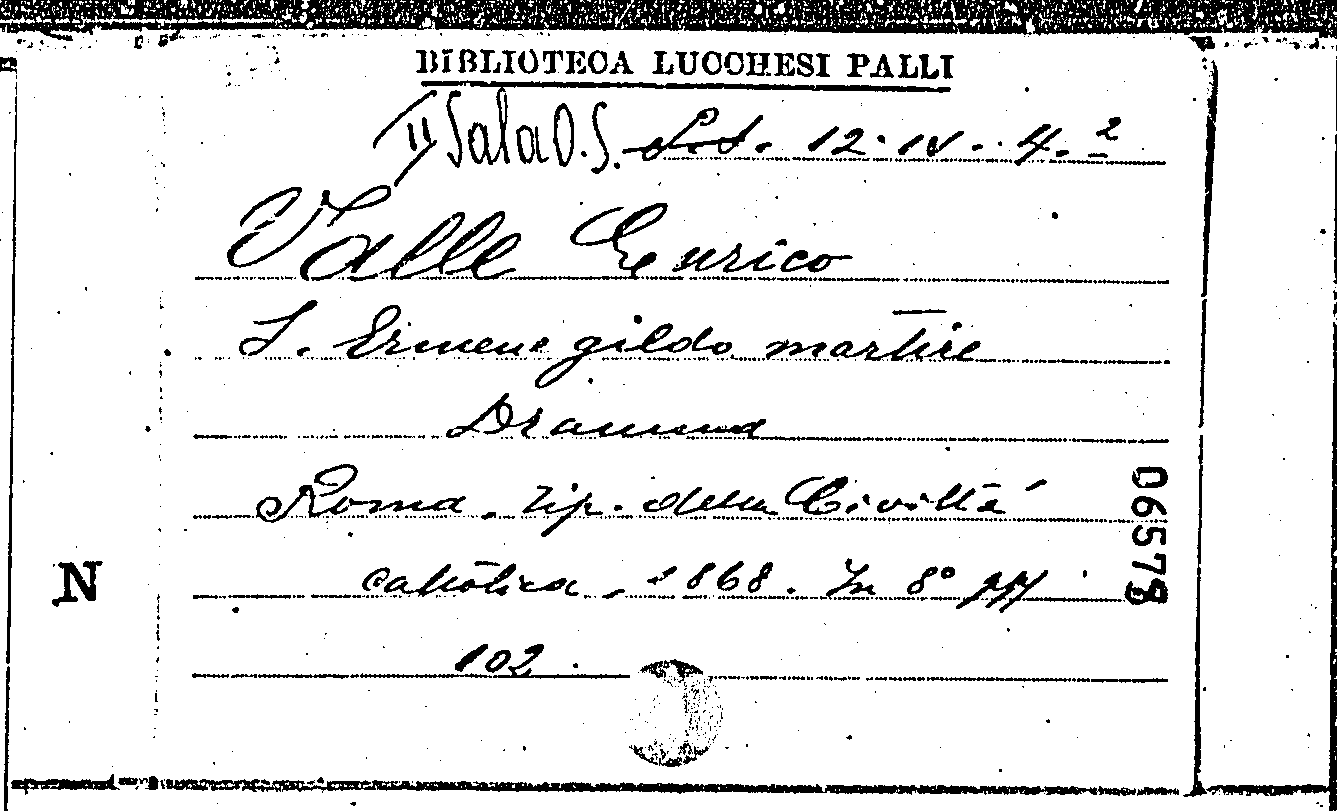 BIBLIOTECA LUCCHESI PALLI
II Sala O.S. 12. IV. 4.2
Valle Enrico
S. Ermenegildo martire
Dramma
Roma, tip. della Civiltà
cattolica, 1868. In 8° pp.
102.
N
06579